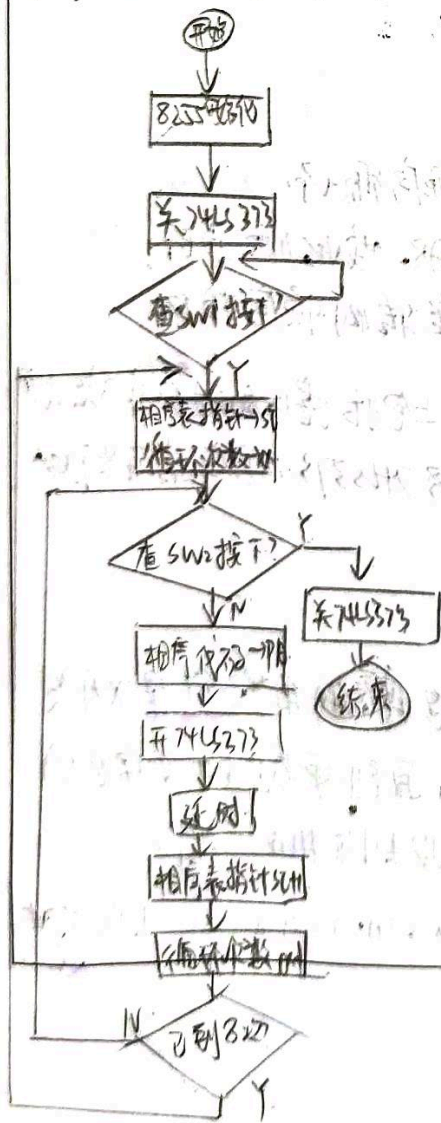 开始
8255初始化
关74LS373
查SW1按下?
Y
相序表指针→SI
循环次数
查SW2按下?
Y
N
关74LS373
结束
相序代码→PA
开74LS373
延时
相序表指针SI+1
循环次数
已到8次
N
Y